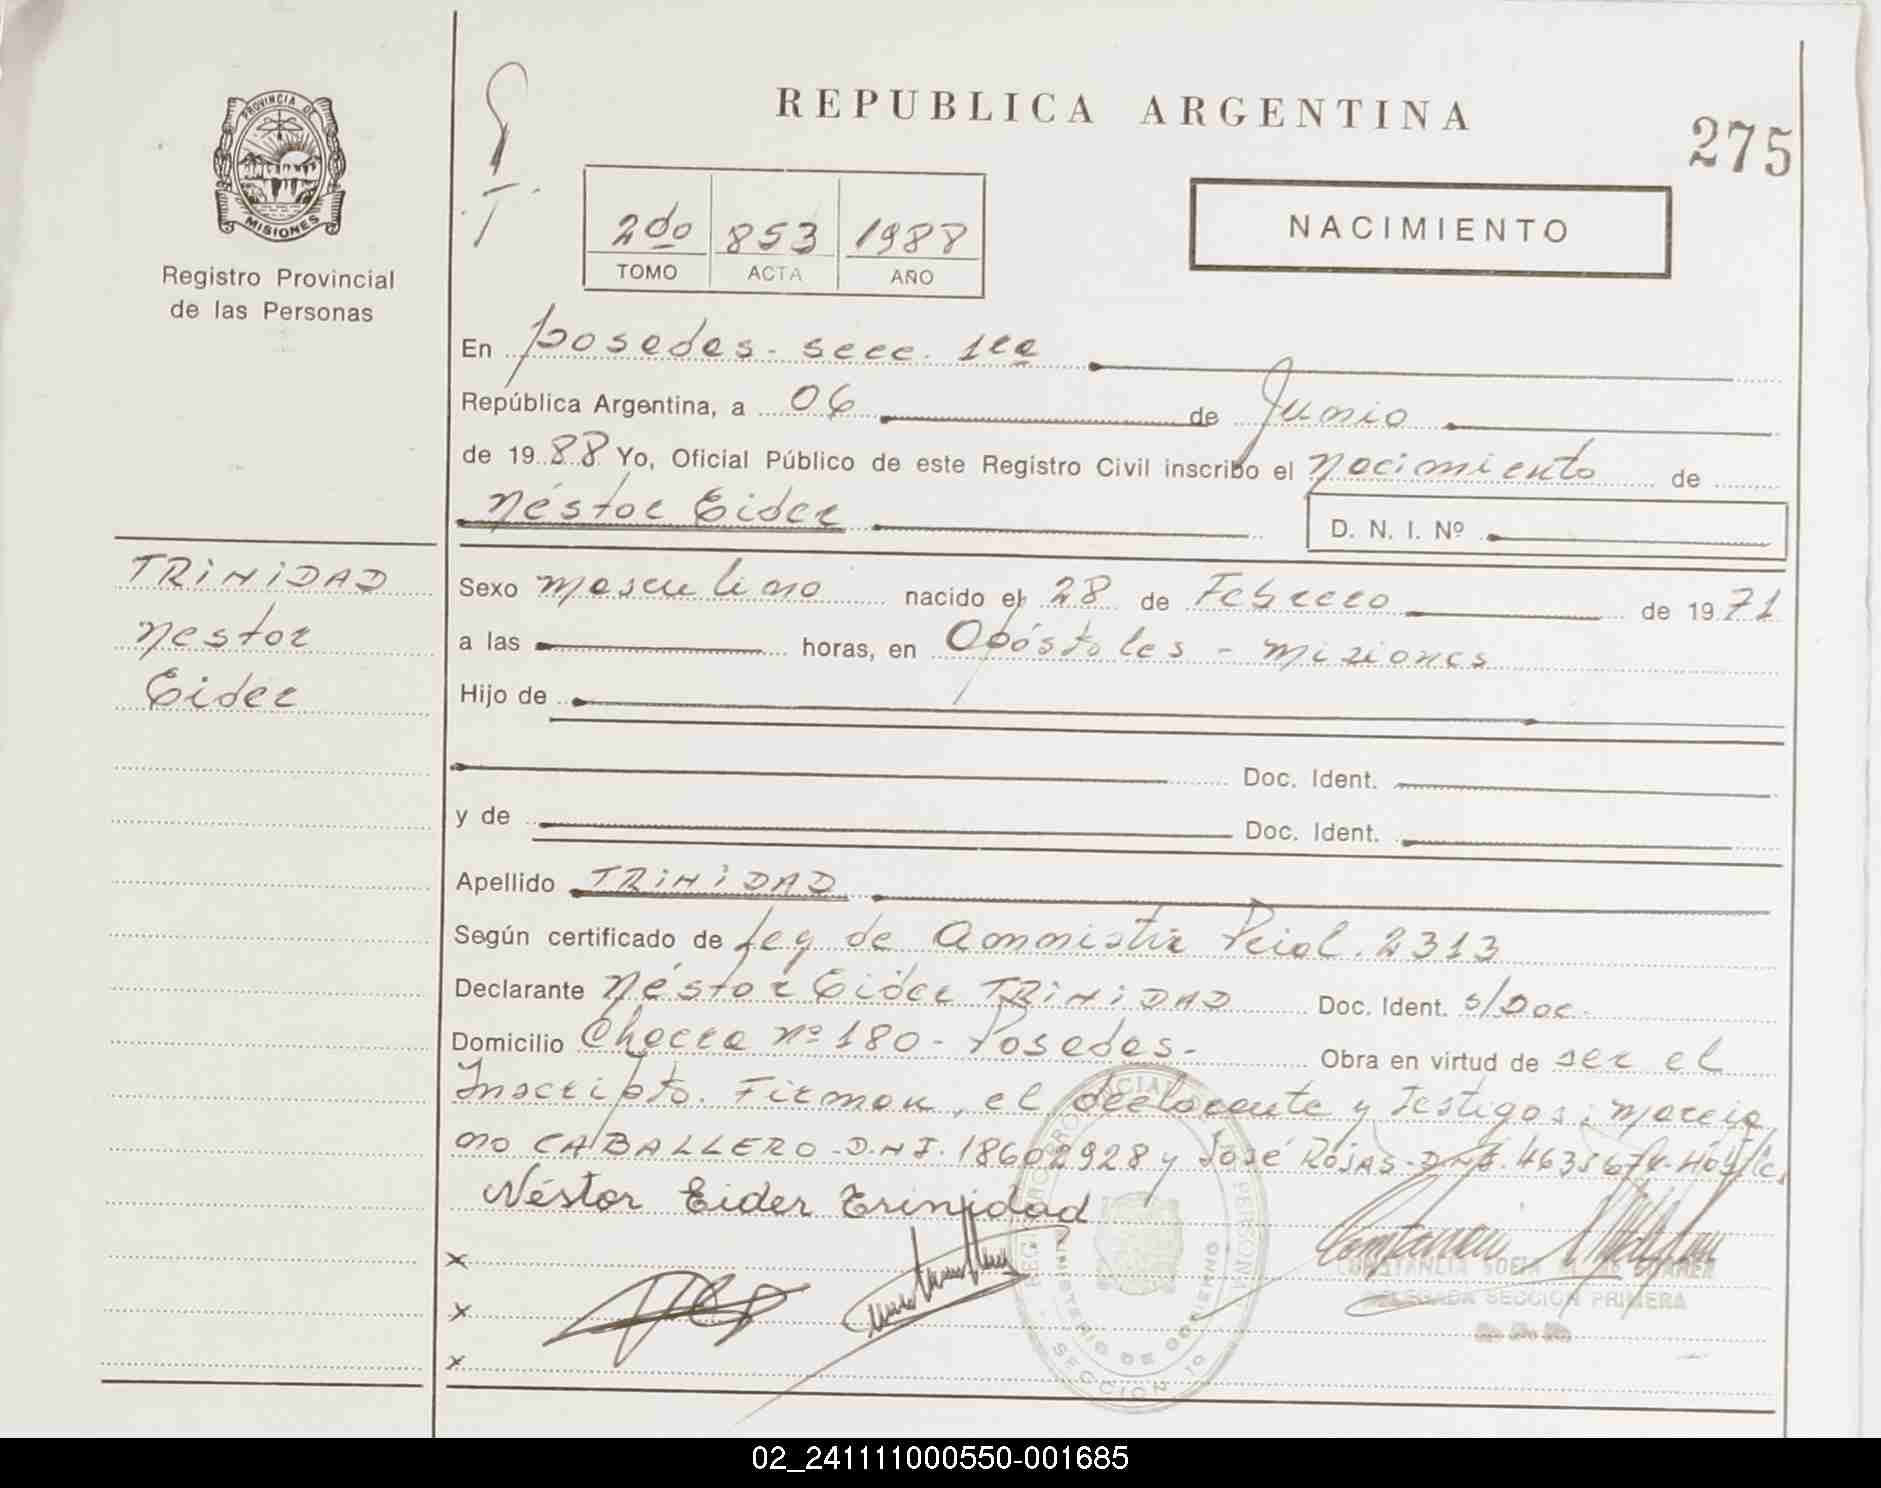 REPUBLICA ARGENTINA
275
PROVINCIA DE
MISIONES
Registro Provincial
de las Personas
2do 853 1988
TOMO ACTA AÑO
NACIMIENTO
En Posadas - secc. 1ra
República Argentina, a 06 de Junio
de 1988 Yo, Oficial Público de este Registro Civil inscribo el Nacimiento de
Néstor Eider D. N. I. Nº
TRINIDAD
Nestor
Eider
Sexo masculino nacido el 28 de Febrero de 1971
a las horas, en Apóstoles - Misiones
Hijo de
Doc. Ident.
y de Doc. Ident.
Apellido TRINIDAD
Según certificado de Ley de Ammistía Pcial. 2313
Declarante Néstor Eider TRINIDAD Doc. Ident. s/Doc.
Domicilio Chacra nº 180 - Posadas - Obra en virtud de ser el
Inscripto. Firman, el declarante y Testigos: Marcia
no CABALLERO - D.N.I. 18602928 y José ROJAS - D.N.I.
Néstor Eider Trinidad
x
x
x
MINISTERIO DE GOBIERNO
SECCION 1º
DELEGADA SECCION PRIMERA
02_241111000550-001685